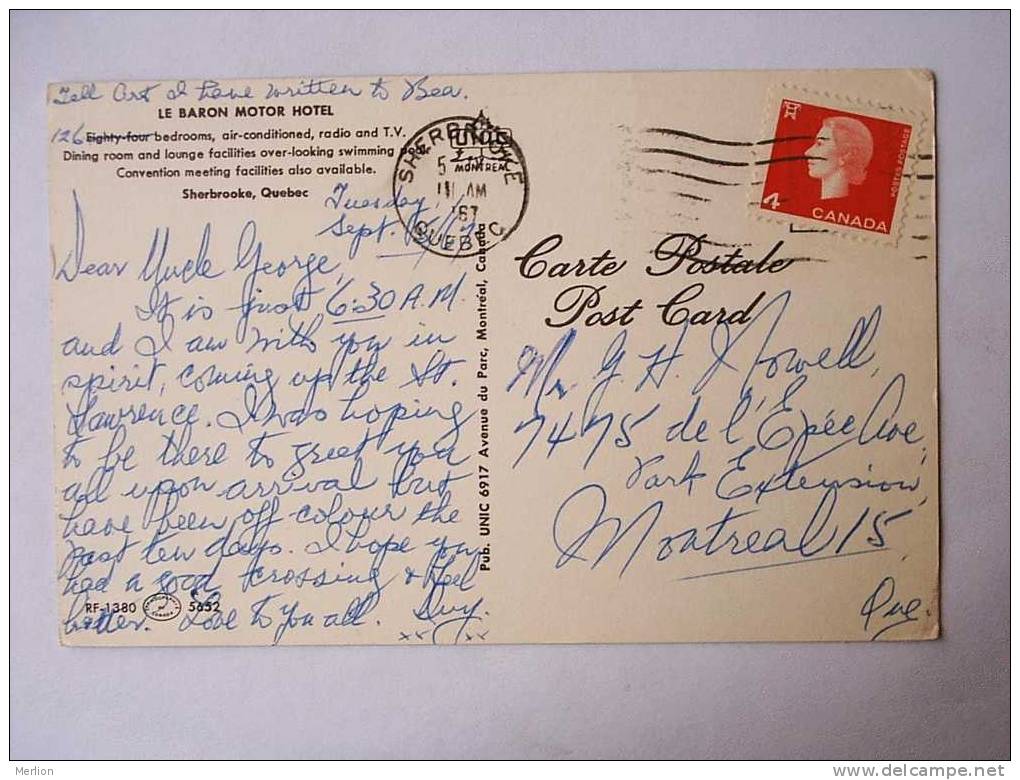 Tell Art I have written to Bea.
LE BARON MOTOR HOTEL
126 Eighty-four bedrooms, air-conditioned, radio and T.V.
Dining room and lounge facilities over-looking swimming pool.
Convention meeting facilities also available.
Sherbrooke, Quebec
Tuesday
Sept.
Dear Uncle George,
It is just 6:30 A.M.
and I am with you in
spirit, coming up the St.
Lawrence. I was hoping
to be there to greet you
all upon arrival but
have been off-colour the
past ten days. I hope you
had a good crossing & feel
better. Love to you all.
xx xx
RF-1380 5652
Pub. UNIC 6917 Avenue du Parc, Montréal, Canada
UNIC
MONTREAL
SHERBROOKE
5
AM
67
QUEBEC
4
CANADA
POSTES POSTAGE
Carte Postale
Post Card
Mr. G. H. Nowell,
7475 de l'Epée Ave,
Park Extension,
Montreal 15,
Que.
Merlion
www.delcampe.net